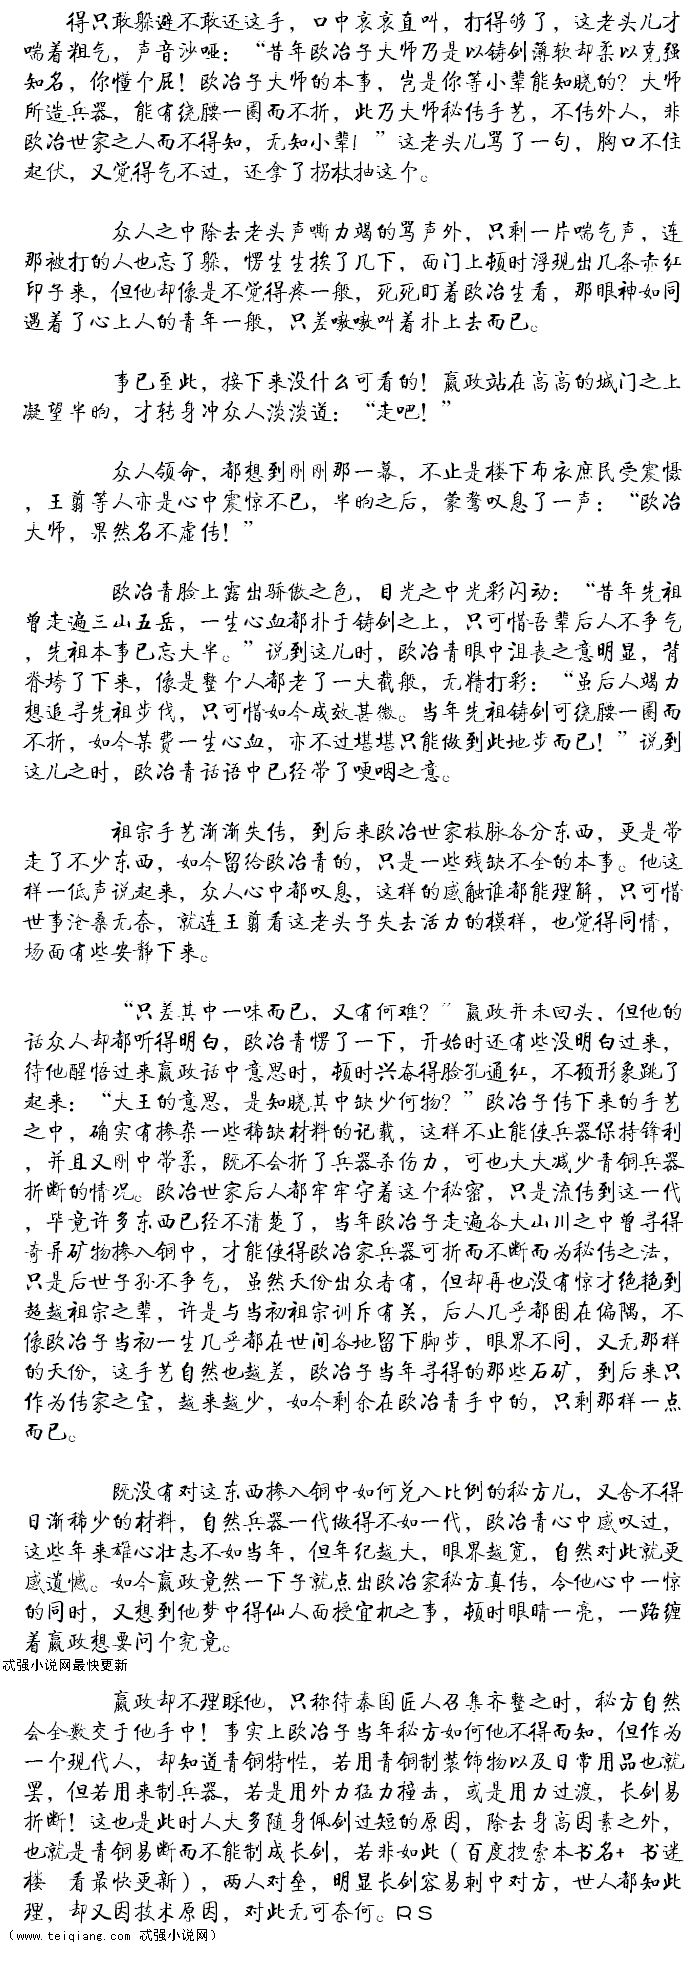 得只敢躲避不敢还这手，口中哀哀直叫，打得够了，这老头儿才
喘着粗气，声音沙哑：“昔年欧冶子大师乃是以铸剑薄软却柔以克强
知名，你懂个屁！欧冶子大师的本事，岂是你等小辈能知晓的？大师
所造兵器，能有绕腰一圈而不折，此乃大师秘传手艺，不传外人，非
欧冶世家之人而不得知，无知小辈！”这老头儿骂了一句，胸口不住
起伏，又觉得气不过，还拿了拐杖抽这个。
众人之中除去老头声嘶力竭的骂声外，只剩一片喘气声，连
那被打的人也忘了躲，愣生生挨了几下，面门上顿时浮现出几条赤红
印子来，但他却像是不觉得疼一般，死死盯着欧冶生看，那眼神如同
遇着了心上人的青年一般，只差嗷嗷叫着朴上去而已。
事已至此，接下来没什么可看的！嬴政站在高高的城门之上
凝望半晌，才转身冲众人淡淡道：“走吧！”
众人领命，都想到刚刚那一幕，不止是楼下布衣庶民受震慑
，王翦等人亦是心中震惊不已，半晌之后，蒙骜叹息了一声：“欧冶
大师，果然名不虚传！”
欧冶青脸上露出骄傲之色，目光之中光彩闪动：“昔年先祖
曾走遍三山五岳，一生心血都朴于铸剑之上，只可惜吾辈后人不争气
，先祖本事已忘大半。”说到这儿时，欧冶青眼中沮丧之意明显，背
脊垮了下来，像是整个人都老了一大截般，无精打彩：“虽后人竭力
想追寻先祖步伐，只可惜如今成效甚微。当年先祖铸剑可绕腰一圈而
不折，如今某费一生心血，亦不过堪堪只能做到此地步而已！”说到
这儿之时，欧冶青话语中已经带了哽咽之意。
祖宗手艺渐渐失传，到后来欧冶世家枝脉各分东西，更是带
走了不少东西，如今留给欧冶青的，只是一些残缺不全的本事。他这
样一低声说起来，众人心中都叹息，这样的感触谁都能理解，只可惜
世事沧桑无奈，就连王翦看这老头子失去活力的模样，也觉得同情，
场面有些安静下来。
“只差其中一味而已，又有何难？”嬴政并未回头，但他的
话众人却都听得明白，欧冶青愣了一下，开始时还有些没明白过来，
待他醒悟过来嬴政话中意思时，顿时兴奋得脸孔通红，不顾形象跳了
起来：“大王的意思，是知晓其中缺少何物？”欧冶子传下来的手艺
之中，确实有掺杂一些稀缺材料的记载，这样不止能使兵器保持锋利
，并且又刚中带柔，既不会折了兵器杀伤力，可也大大减少青铜兵器
折断的情况。欧冶世家后人都牢牢守着这个秘密，只是流传到这一代
，毕竟许多东西已经不清楚了，当年欧冶子走遍各大山川之中曾寻得
奇异矿物掺入铜中，才能使得欧冶家兵器可折而不断而为秘传之法，
只是后世子孙不争气，虽然天份出众者有，但却再也没有惊才绝艳到
超越祖宗之辈，许是与当初祖宗训斥有关，后人几乎都困在偏隅，不
像欧冶子当初一生几乎都在世间各地留下脚步，眼界不同，又无那样
的天份，这手艺自然也越差，欧冶子当年寻得的那些石矿，到后来只
作为传家之宝，越来越少，如今剩余在欧冶青手中的，只剩那样一点
而已。
既没有对这东西掺入铜中如何兑入比例的秘方儿，又舍不得
日渐稀少的材料，自然兵器一代做得不如一代，欧冶青心中感叹过，
这些年来雄心壮志不如当年，但年纪越大，眼界越宽，自然对此就更
感遗憾。如今嬴政竟然一下子就点出欧冶家秘方真传，令他心中一惊
的同时，又想到他梦中得仙人面授宜机之事，顿时眼睛一亮，一路缠
着嬴政想要问个究竟。
忒强小说网最快更新
嬴政却不理睬他，只称待秦国匠人召集齐整之时，秘方自然
会全数交于他手中！事实上欧冶子当年秘方如何他不得而知，但作为
一个现代人，却知道青铜特性，若用青铜制装饰物以及日常用品也就
罢，但若用来制兵器，若是用外力猛力撞击，或是用力过渡，长剑易
折断！这也是此时人大多随身佩剑过短的原因，除去身高因素之外，
也就是青铜易断而不能制成长剑，若非如此（百度搜索本书名+ 书迷
楼 看最快更新），两人对垒，明显长剑容易刺中对方，世人都知此
理，却又因技术原因，对此无可奈何。RS
（www.teiqiang.com 忒强小说网）